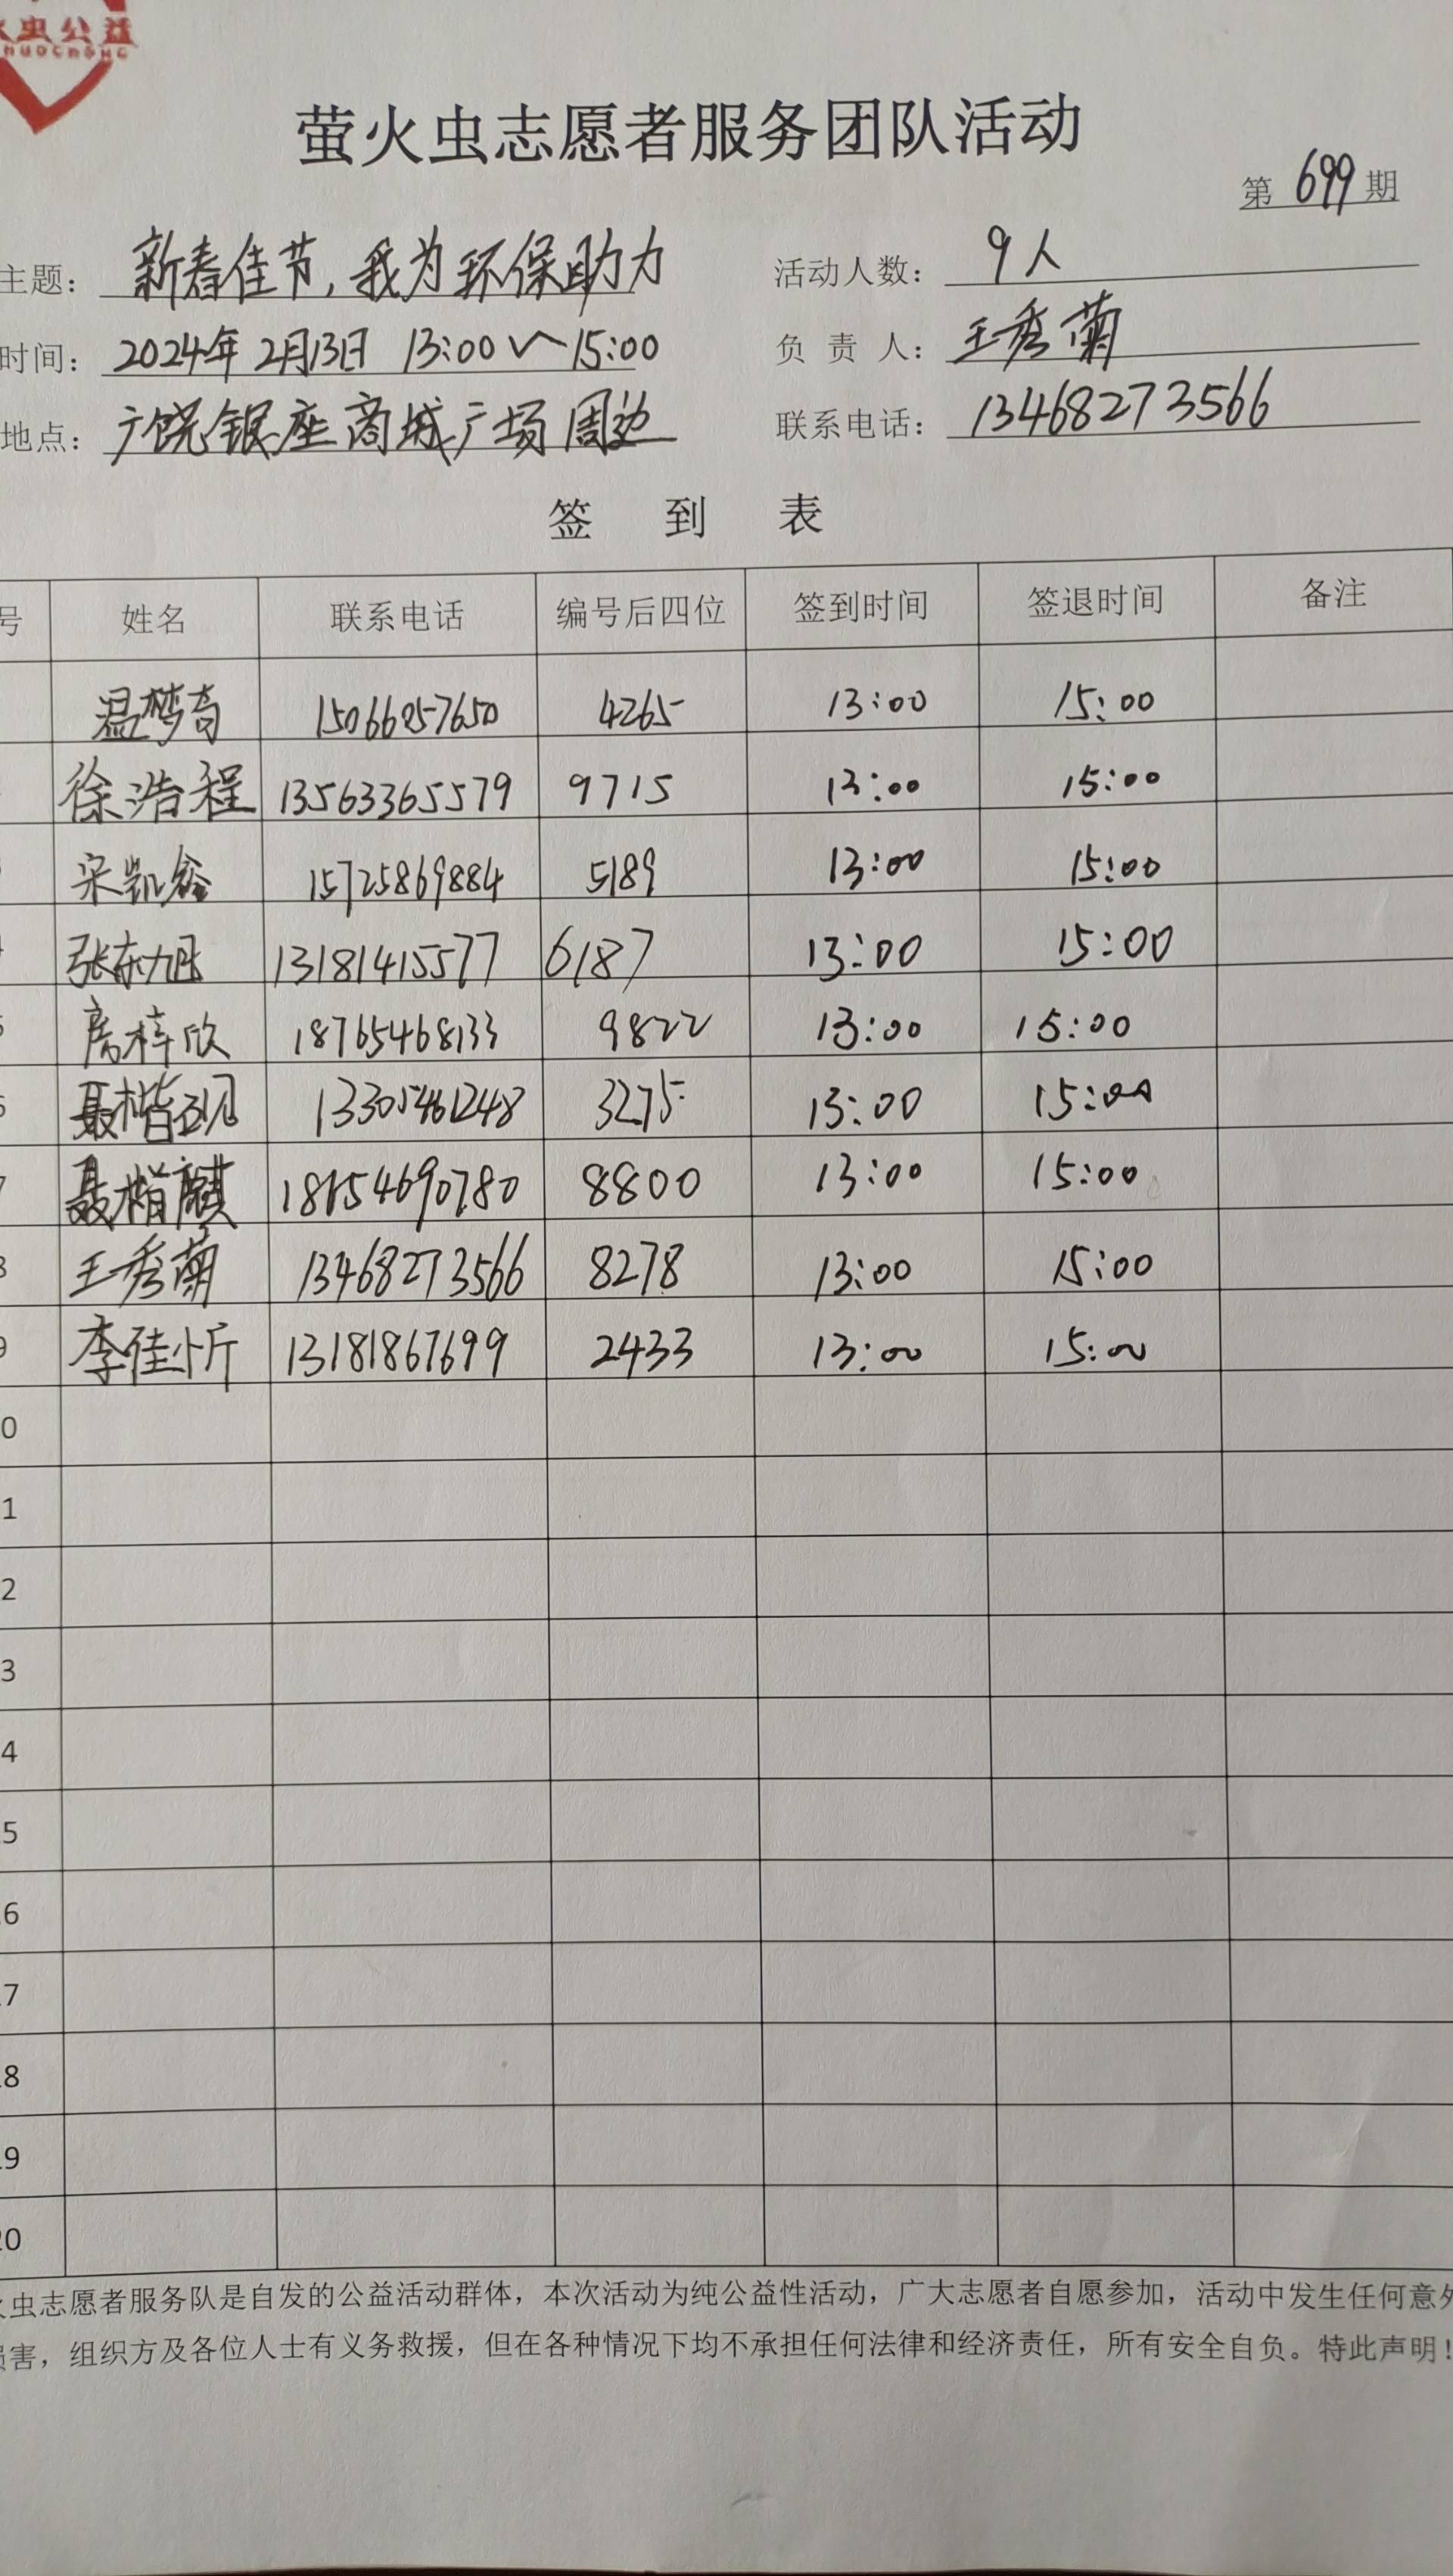 虫公益
HUOCHONG
萤火虫志愿者服务团队活动
第 699 期
主题： 新春佳节，我为环保助力 活动人数： 9人
时间： 2024年2月13日 13:00~15:00 负 责 人： 王秀菊
地点： 广饶银座商城广场周边 联系电话： 13468273566
签 到 表
号 姓名 联系电话 编号后四位 签到时间 签退时间 备注
温梦奇 4265 13:00 15:00
徐浩程 13563365579 9715 13:00 15:00
宋凯鑫 15725869884 5189 13:00 15:00
张东旭 13181415577 6187 13:00 15:00
房梓欣 18765468133 9822 13:00 15:00
聂楷 13305461248 3275 13:00 15:00
聂楷麒 8800 13:00 15:00
8 王秀菊 13468273566 8278 13:00 15:00
9 李佳忻 13181867699 2433 13:00 15:00
0
1
2
3
4
5
6
7
8
9
20
火虫志愿者服务队是自发的公益活动群体，本次活动为纯公益性活动，广大志愿者自愿参加，活动中发生任何意外
损害，组织方及各位人士有义务救援，但在各种情况下均不承担任何法律和经济责任，所有安全自负。特此声明！